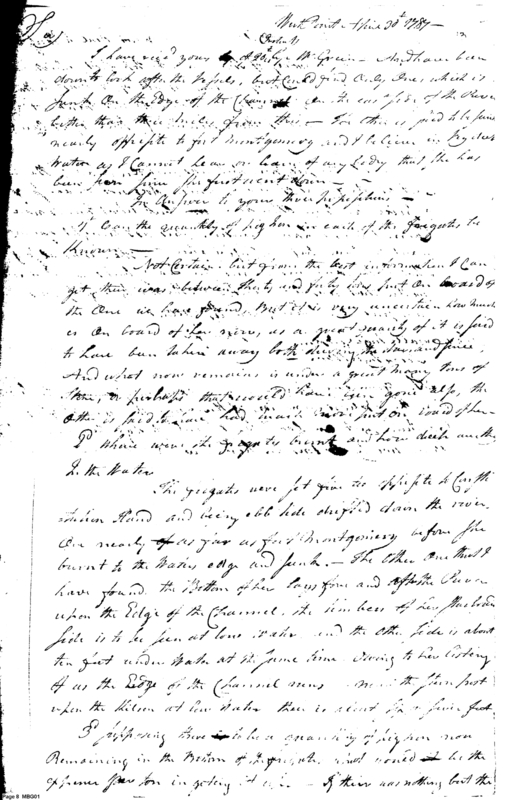 West Point April 30th 1787
I have recd. your by Mr Green And have been
down to look after the but Could find Only One which is
Sunk On the Edge of the Channel On the east side of the River
better than three miles from this The Other is said to be sunk
nearly opposite to fort Montgomery and I believe in
Water as I Cannot hear or learn of any Body that She has
been seen since She first went down
In Answer to yours
1st Can the quantity of pig Iron in each of the frigates be
Known
Not Certain but from the best information I can
get there was between thirty and forty tons put On board of
the One we have found, But it is very uncertain how much
is On board of her now, as a great quantity of it is said
to have been taken away both during the War and since,
And what now remains is under a great many tons of
Stone, or perhaps that would have been gone also, the
Other is said to have had much more put on board of her
2d Where were the frigates burnt and how deep are they
In the Water
The frigates were set fire to opposite to
Island and being ebb tide drifted down the river,
One nearly as far as fort Montgomery before She
burnt to the Waters edge and Sunk. The Other One that I
have found the Bottom of her lays firm and the River
upon the Edge of the Channel, the timbers of her Starboard
Side is to be seen at low Water and the Other Side is about
ten feet under Water at the same time Owing to her listing
Off as the Edge of the Channel runs the Stern post
upon the at low Water there is about feet
3d Supposing there to be a quantity of pig Iron now
Remaining in the Bottom of the frigates what would be the
expence per ton in geting it If there was nothing but the
Page 8 MBG01